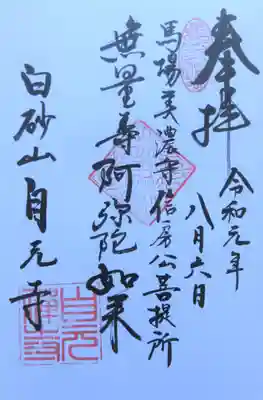 奉拝
令和元年
八月六日
馬場美濃守信房公菩提所
無量寿阿弥陀如来
白砂山 自元寺
自元禅寺